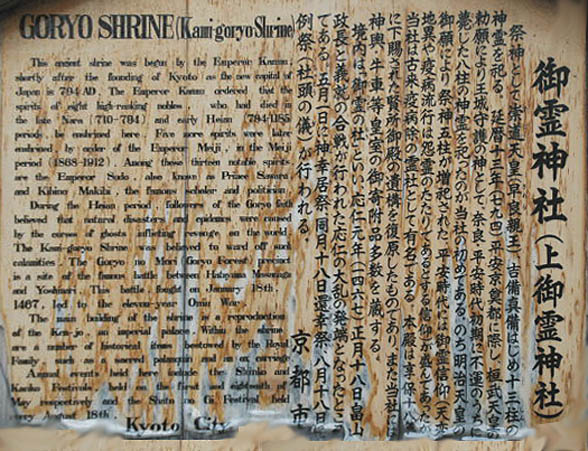 GORYO SHRINE (Kami-goryo Shrine)
This ancient shrine was begun by the Emperor Kanmu,
shortly after the founding of Kyoto as the new capital of
Japan in 794 AD. The Emperor Kanmu ordered that the
spirits of eight high-ranking nobles, who had died in
the late Nara (710-784) and early Heian (784-1185)
periods, be enshrined here. Five more spirits were later
enshrined, by order of the Emperor Meiji, in the Meiji
period (1868-1912). Among these thirteen notable spirits
are the Emperor Sudo, also known as Prince Sawara,
and Kibino Makibi, the famous scholar and politician.
During the Heian period, followers of the Goryo faith
believed that natural disasters and epidemics were caused
by the curses of ghosts inflicting revenge on the world.
The Kami-goryo Shrine was believed to ward off such
calamities. The Goryo no Mori (Goryo Forest) precinct
is a site of the famous battle between Hatayama Masanaga
and Yoshinari. This battle, fought on January 18th,
1467, led to the eleven-year Onin War.
The main building of the shrine is a reproduction
of the Ken-jo, an imperial palace. Within the shrine
are a number of historical items bestowed by the Royal
Family, such as a sacred palanquin and an ox carriage.
Annual events held here include the Shinko and
Kanko Festivals, held on the first and eighteenth of
May respectively and the Shato no Gi Festival held
every August 18th.
Kyoto City
御霊神社(上御霊神社)
祭神として崇道天皇(早良親王)、吉備真備はじめ十三柱の
神霊を祀る。延暦十三年(七九四)平安京奠都に際し、桓武天皇の
勅願により王城守護の神として、奈良・平安時代初期に不運のうちに
薨じた八柱の神霊を祀ったのが当社の初めである。のち明治天皇の
御願により祭神五柱が増祀された。平安時代には御霊信仰(天変
地異や疫病流行は怨霊のたたりであるとする信仰)が盛んであったが、
当社は古来、疫病除の霊社として有名である。本殿は享保十八年
に下賜された賢所御殿の遺構を復原したものであり、また当社に
神輿・牛車等、皇室の御寄附品多数を蔵する。
境内は「御霊の杜」といい、応仁元(一四六七)正月十八日畠山
政長と義就の合戦が行われた応仁の大乱の発端となったところ
である。五月一日に神幸祭、同月十八日還幸祭、八月十八日
例祭(社頭の儀)が行われる。
京都市